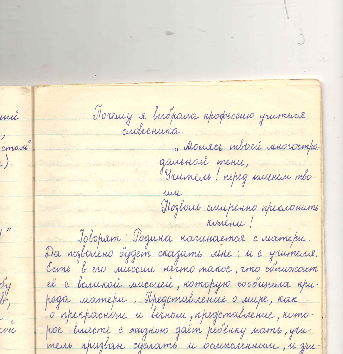 Почему я выбрала профессию учителя
словесника.
„Молясь твоей многостра-
дальной тени,
Учитель! перед именем тво-
им
Позволь смиренно преклонить
колени!
Говорят: Родина начинается с матери.
Да позволено будет сказать мне: и с учителя.
Есть в его миссии нечто такое, что сближает
её с великой миссией, которую сообщила при-
рода матери. Представление о мире, как
о прекрасном и вечном, представление, кото-
рое вместе с жизнью даёт ребёнку мать, учи-
тель призван сделать и осмысленным, и
столь"